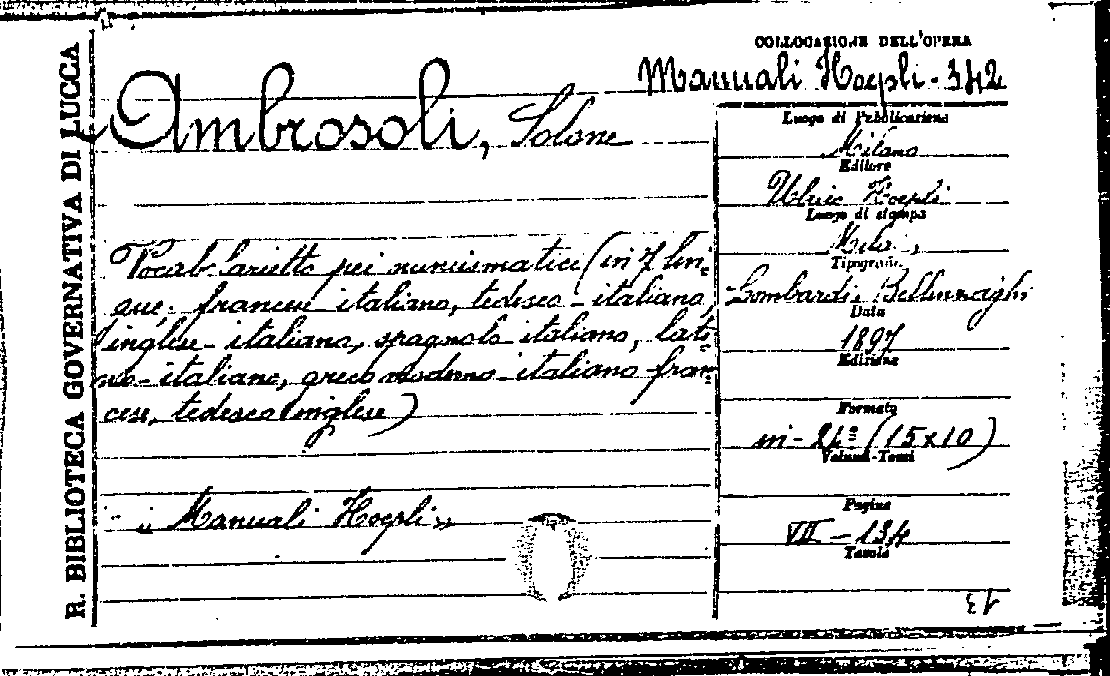 R. BIBLIOTECA GOVERNATIVA DI LUCCA
COLLOCAZIONE DELL'OPERA
Manuali Hoepli - 342
Ambrosoli, Solone
Luogo di Pubblicazione
Milano
Editore
Ulrico Hoepli
Luogo di stampa
Milano
Tipografia
Lombardi e Bellinzaghi
Data
1897
Edizione
Formato
in-24º (15x10)
Volumi-Tomi
Pagine
VII - 134
Tavole
13
Vocabolarietto pei numismatici (in 7 lin-
gue: francese italiano, tedesco - italiano,
inglese - italiano, spagnolo italiano, lati-
no - italiano, greco moderno - italiano fran-
cese, tedesco inglese)
"Manuali Hoepli"